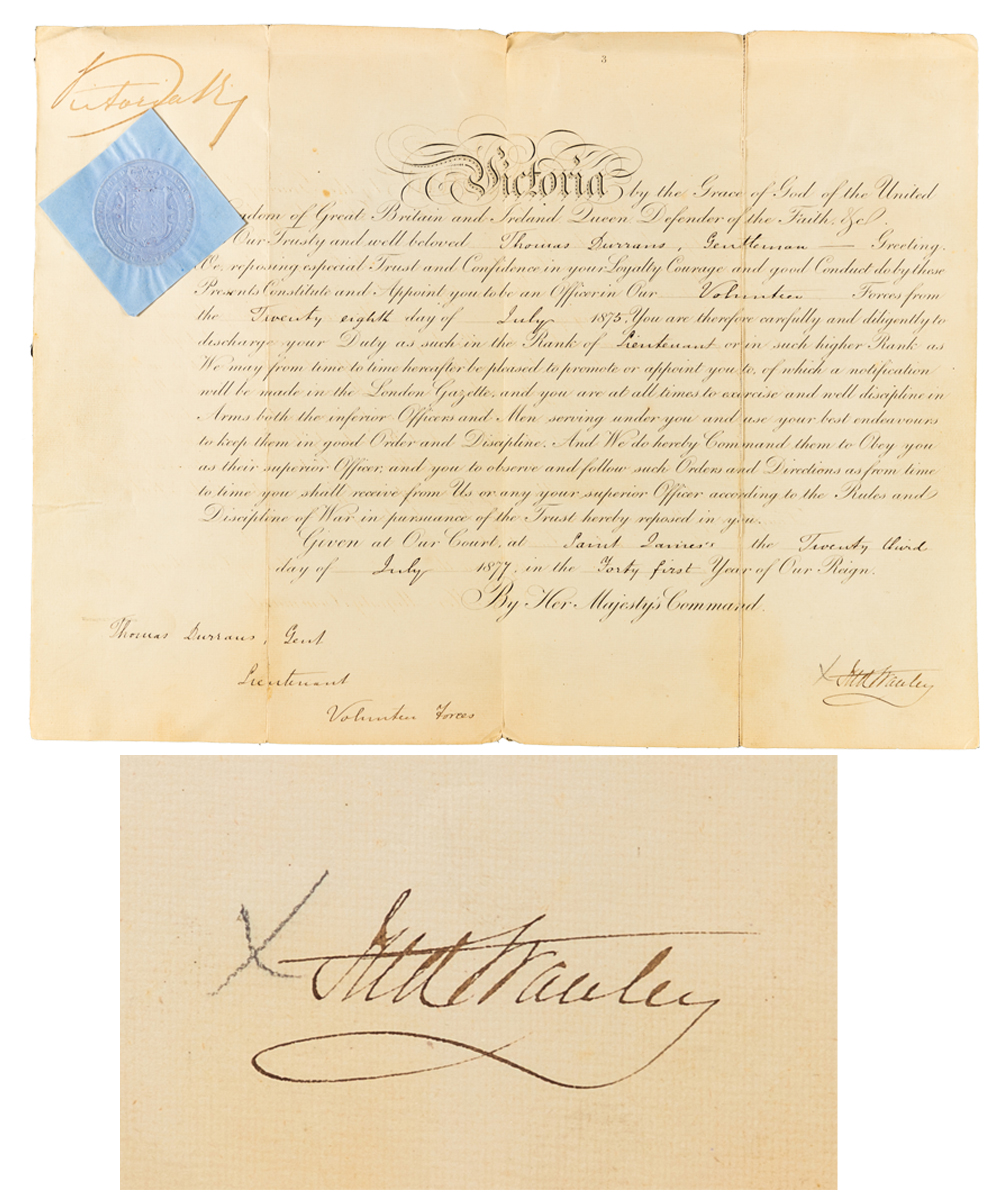 3
Victoria R
Victoria by the Grace of God of the United
gdom of Great Britain and Ireland Queen Defender of the Faith. &c.
Our Trusty and well beloved Thomas Durrans, Gentleman — Greeting.
We, reposing especial Trust and Confidence in your Loyalty Courage and good Conduct do by these
Presents Constitute and Appoint you to be an Officer in Our Volunteer Forces from
the Twenty eighth day of July 1875. You are therefore carefully and diligently to
discharge your Duty as such in the Rank of Lieutenant or in such higher Rank as
We may from time to time hereafter be pleased to promote or appoint you to, of which a notification
will be made in the London Gazette, and you are at all times to exercise and well discipline in
Arms both the inferior Officers and Men serving under you and use your best endeavours
to keep them in good Order and Discipline. And We do hereby Command them to Obey you
as their superior Officer, and you to observe and follow such Orders and Directions as from time
to time you shall receive from Us or any your superior Officer according to the Rules and
Discipline of War in pursuance of the Trust hereby reposed in you.
Given at Our Court, at Saint James's the Twenty third
day of July 1877, in the Forty first Year of Our Reign.
By Her Majesty's Command.
Thomas Durrans, Gent
Lieutenant
Volunteer Forces